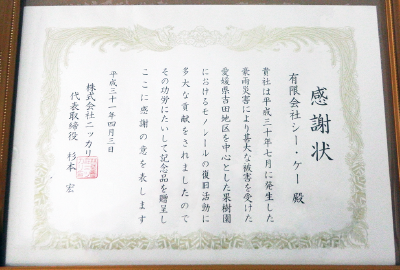 感謝状
有限会社シー・ケー 殿
貴社は平成三十年七月に発生した
豪雨災害により甚大な被害を受けた
愛媛県吉田地区を中心とした果樹園
におけるモノレールの復旧活動に
多大な貢献をされましたので
その功労にたいして記念品を贈呈し
ここに感謝の意を表します
平成三十一年四月三日
株式会社ニッカリ
代表取締役 杉本 宏